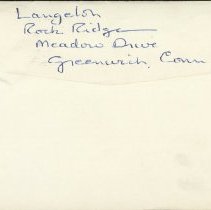 Langdon
Rock Ridge
Meadow Drive
Greenwich, Conn